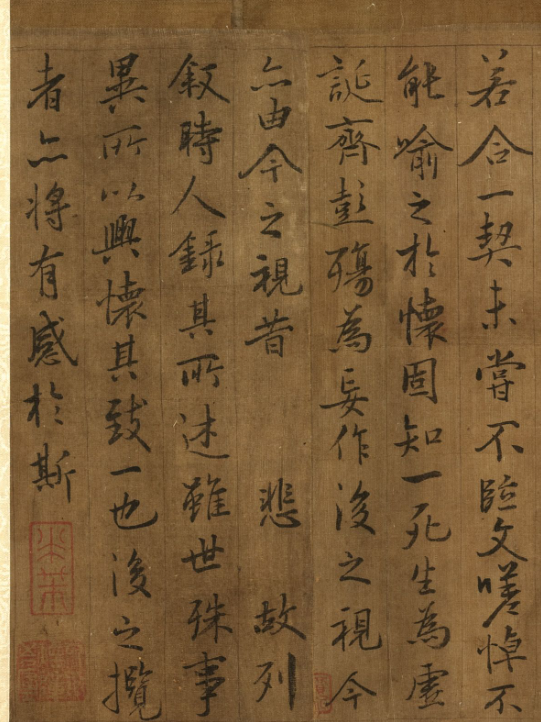 若合一契未嘗不臨文嗟悼不
能喻之於懷固知一死生為虛
誕齊彭殤為妄作後之視今
亦由今之視昔 悲 故列
敘時人錄其所述雖世殊事
異所以興懷其致一也後之攬
者亦將有感於斯